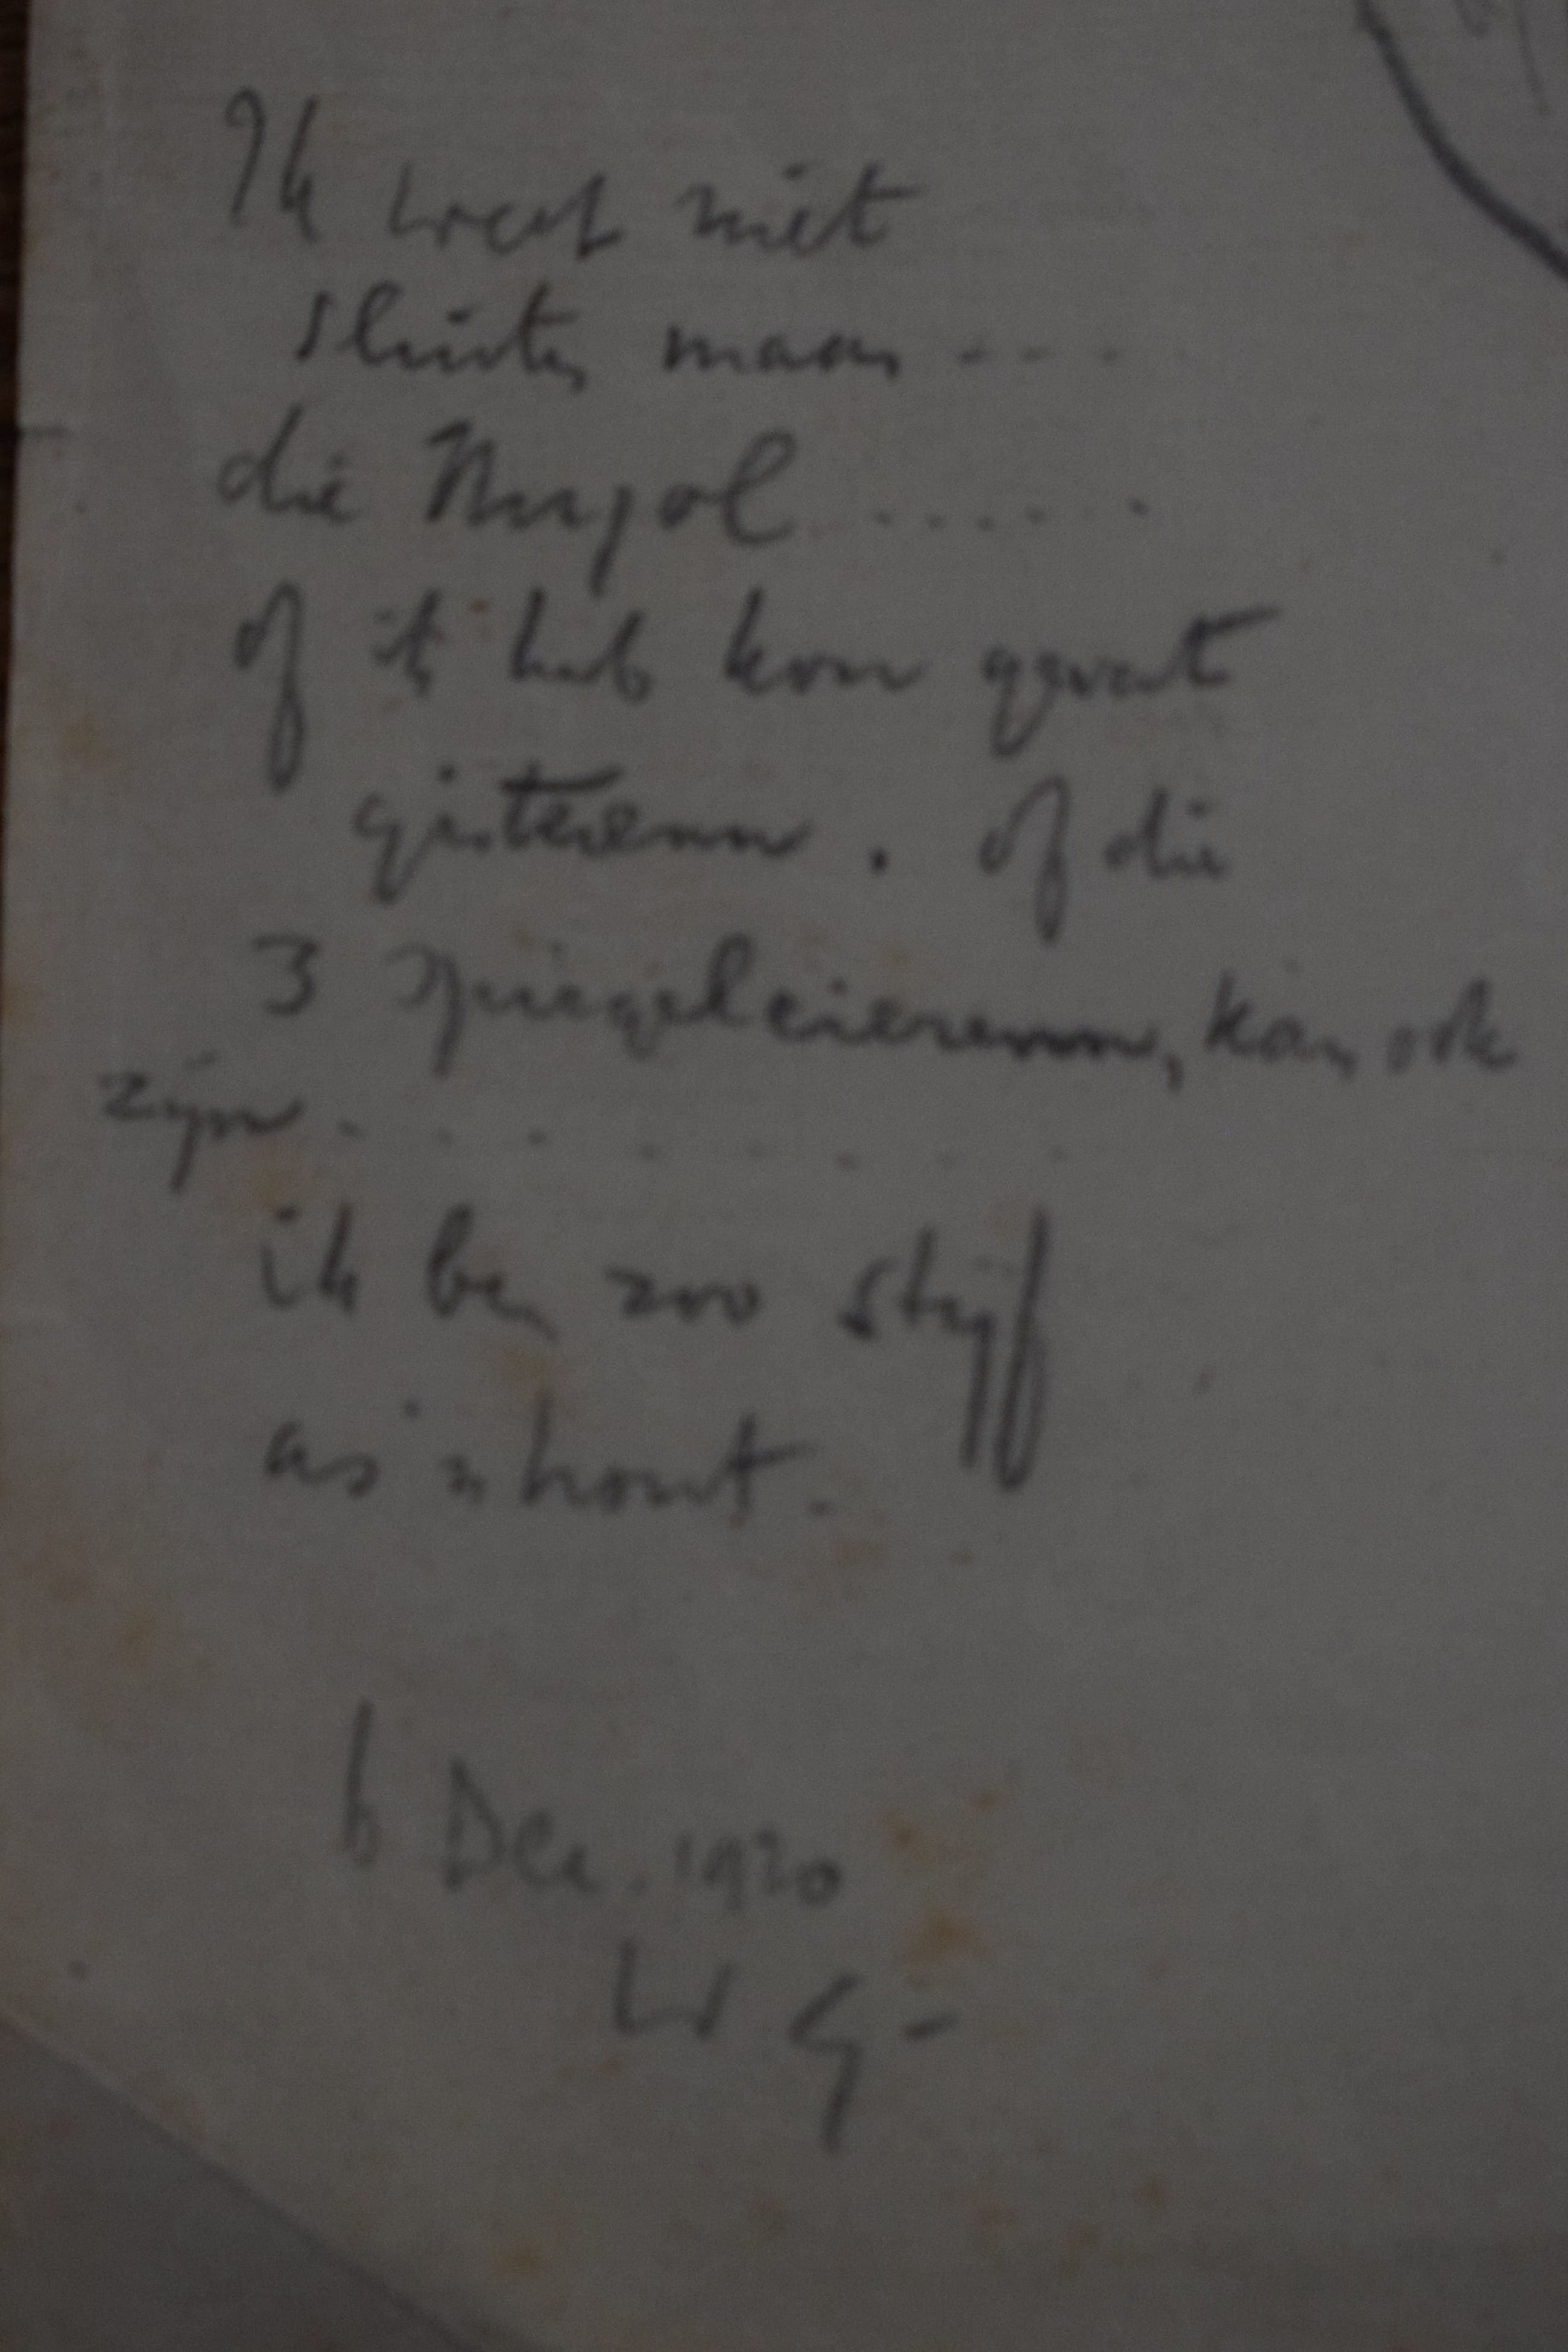 Ik weet niet
sluiten maar ----
die Nujol ......
of ik heb kou gevat
gisterenn. of die
3 spiegeleierennn, kan ook
zijn ........
ik ben zoo stijf
as 'n hout.
6 Dec. 1920
W G-